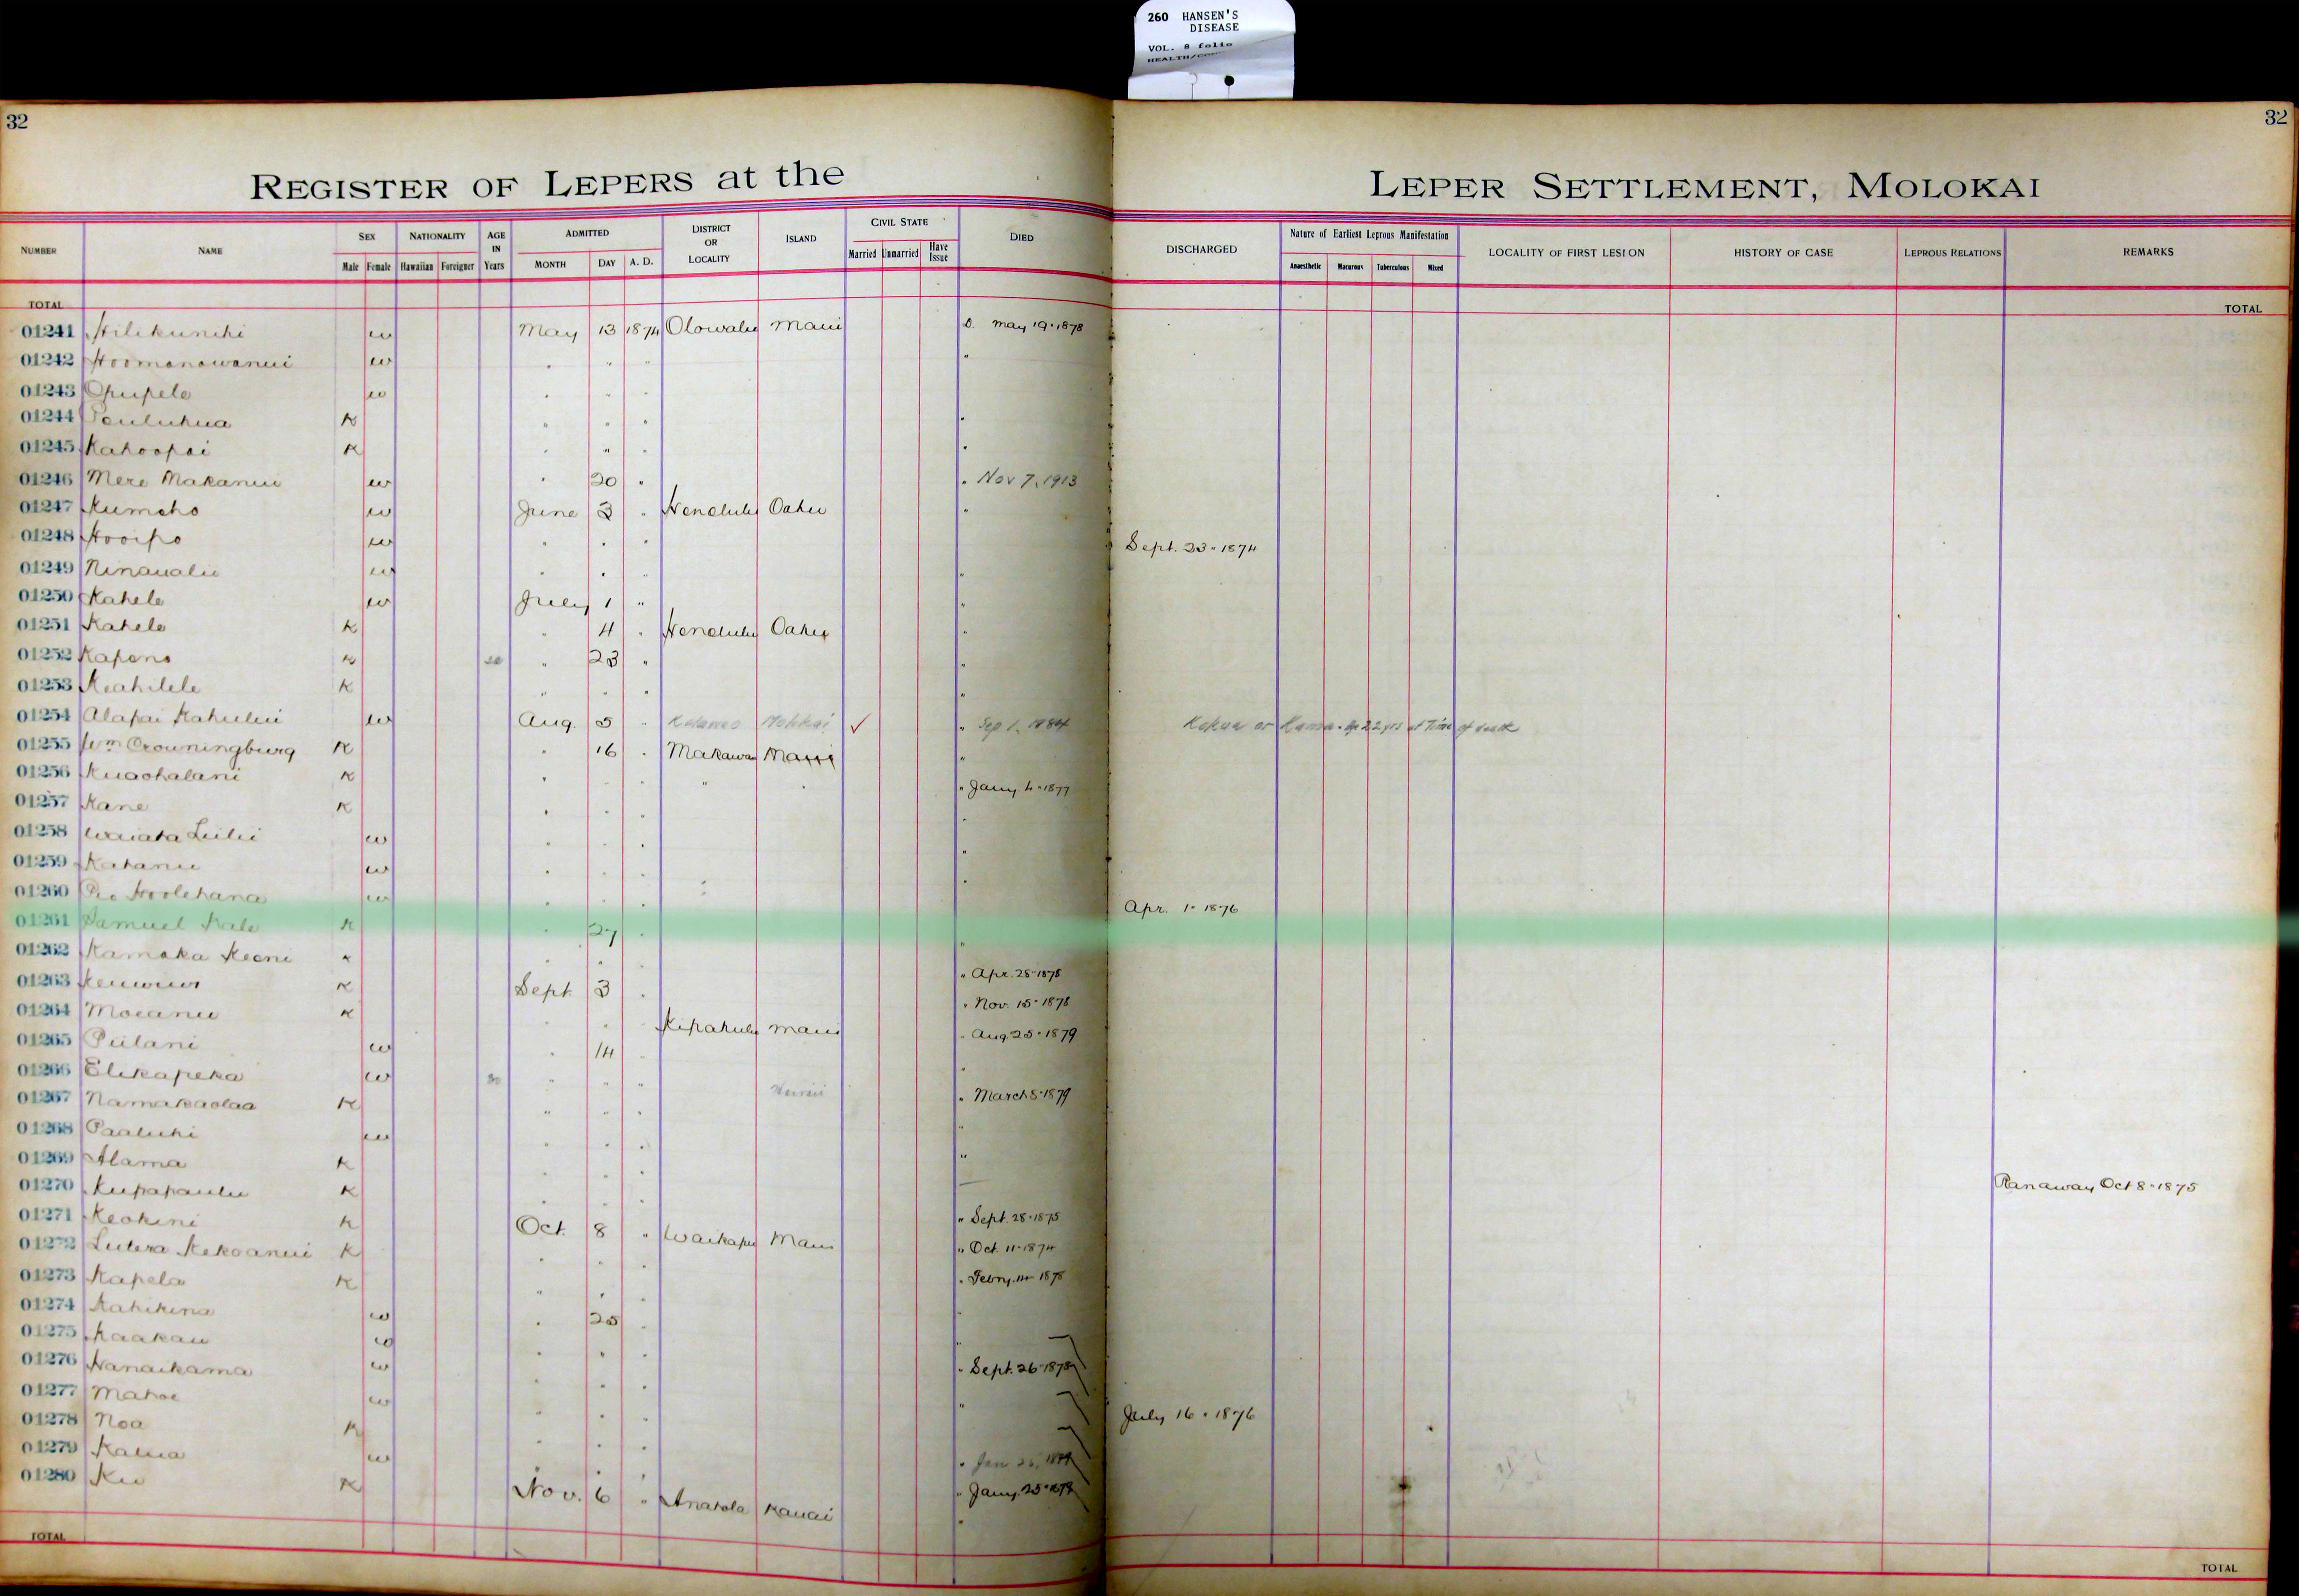 260 HANSEN'S
DISEASE
VOL. 8 folio
32
32
REGISTER OF LEPERS at the LEPER SETTLEMENT, MOLOKAI
NUMBER NAME SEX NATIONALITY AGE IN Years ADMITTED DISTRICT OR LOCALITY ISLAND CIVIL STATE DIED DISCHARGED Nature of Earliest Leprous Manifestation LOCALITY OF FIRST LESION HISTORY OF CASE LEPROUS RELATIONS REMARKS
Male Female Hawaiian Foreigner MONTH DAY A. D. Married Unmarried Have Issue Anaesthetic Macurous Tuberculous Mixed
TOTAL TOTAL
01241 Hilikunihi w May 13 1874 Olowalu Maui D. May 19 · 1878
01242 Hoomanawanui w " " " "
01243 Opupele w " " "
01244 Pauluhua K " " " "
01245 Kahoopai K " " " "
01246 Mere Makanui w " 20 " " Nov 7, 1913
01247 Kumeho w June 3 " Honolulu Oahu "
01248 Hooipo w " " " Sept. 23 · 1874
01249 Ninaualii w " " " "
01250 Kahele w July 1 " "
01251 Kahele K " 4 " Honolulu Oahu "
01252 Kapena K " 23 " "
01253 Keahilele K " " " "
01254 Alapai Kahului w Aug. 5 " Kalawao Molokai ✓ " Sep 1, 1884 Kokua or Kama · age 22 yrs at Time of death
01255 Wm Crowningburg K " 16 " Makawao Maui "
01256 Kuaohalani K " " " " " " Jany. 4 · 1877
01257 Kane K " " " "
01258 Waiaka Liilii w " " " "
01259 Kahanu w " " " "
01260 Pio Hoolehana w " " " Apr. 1 · 1876
01261 Samuel Kale K " 27 " "
01262 Kamaka Keoni K " " " Apr. 28 · 1878
01263 K Sept 3 " " Nov. 15 · 1878
01264 Moeanu K " " " Kipahulu Maui " Aug 25 · 1879
01265 Piilani w " 14 " "
01266 Elikapeka w 30 " " " Hawaii " March 8 · 1879
01267 Namakaolaa K " " " "
01268 Paaluhi w " " " "
01269 Alama K " " " Ranaway Oct 8 · 1875
01270 Kupapaulu K " " " " Sept. 28 · 1875
01271 Keohini K Oct. 8 " Waikapu Maui " Oct. 11 · 1874
01272 Lutera Kekoanui K " " " " Febry. 14 1878
01273 Kapela K " " " "
01274 Kahikina w " 25 " "
01275 Kaakau w " " " " Sept. 26 · 1878
01276 Nanaikama w " " " "
01277 Mahoe w " " " July 16 · 1876
01278 Noa K " " " " Jan 26, 1879
01279 Kalua w " " " " Jany. 25 · 1879
01280 Ku K Nov. 6 " Anahola Kauai "
TOTAL TOTAL